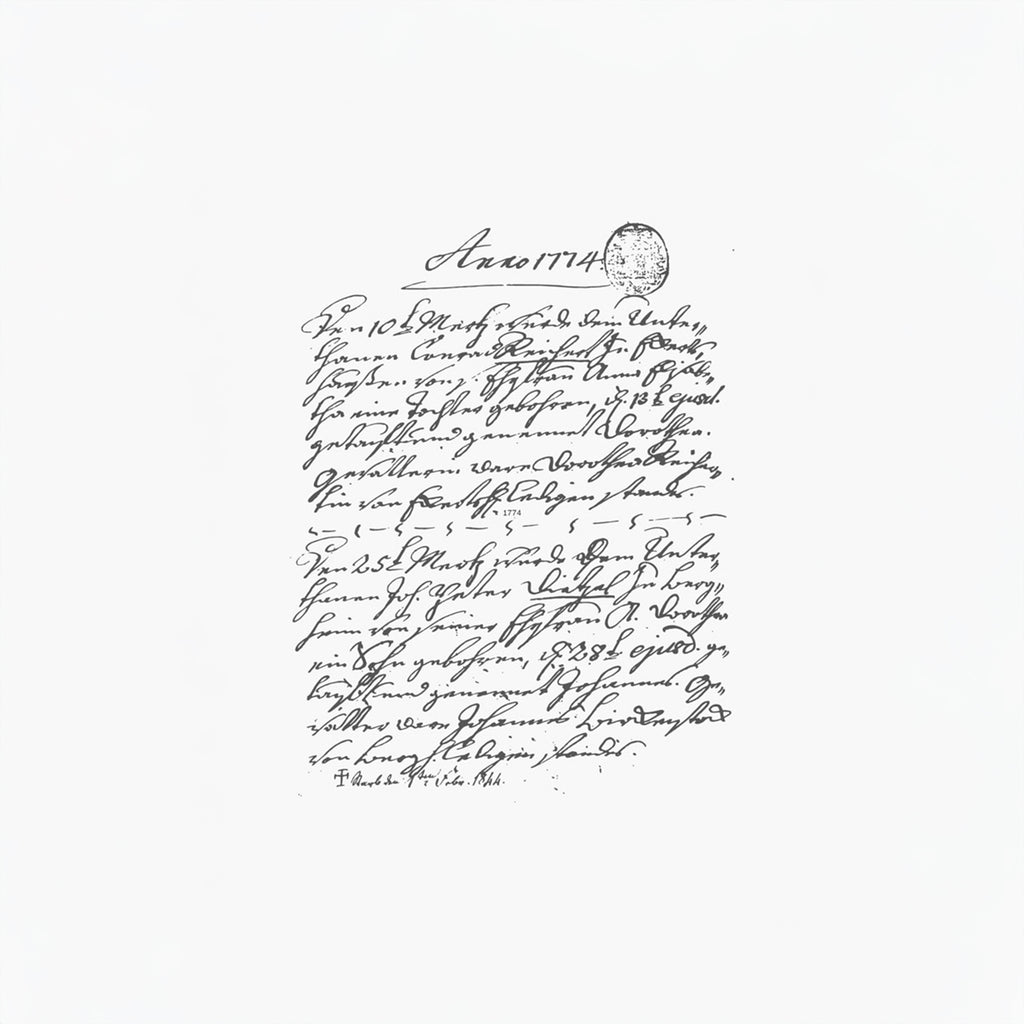 Anno 1774.
Den 10t Mertz wurde dem Unter„
thanen Conrad Reichert zu
haußen von s. Ehefrau Anna Elisabe„
tha eine Tochter gebohren, d. 13t ejusd.
getauft und genennet Dorothea.
Gevatterin ware Dorothea Reicher„
tin von ledigen standes.
1774
Den 25t Mertz wurde dem Unter„
thanen Joh. Peter Dietzel zu Berg„
heim von seiner Ehefrau A. Dorothea
ein Sohn gebohren, d. 28t ejusd. ge„
tauft und genennet Johannes. Ge„
vatter ware Johannes Birckenstock
von Bergh. ledigen standes.
starb den Febr. 1844.